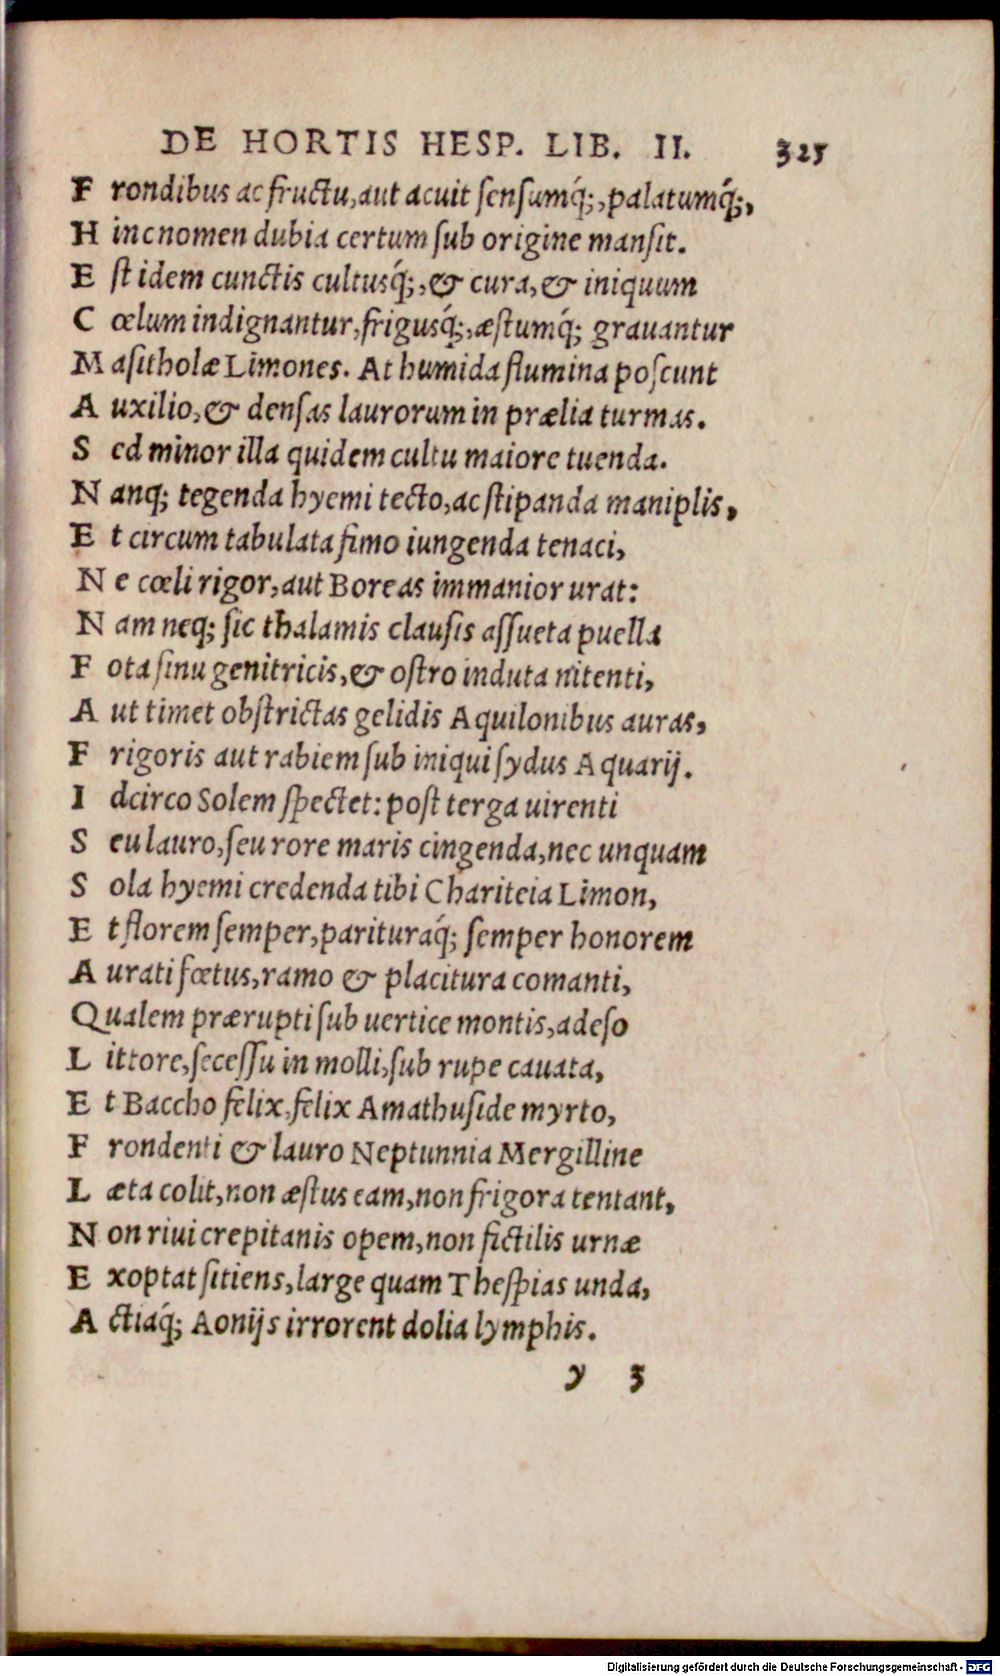 DE HORTIS HESP. LIB. II. 325
F rondibus ac fructu, aut acuit sensumq́;, palatumq́;,
H inc nomen dubia certum sub origine mansit.
E st idem cunctis cultusq́;, & cura, & iniquum
C œlum indignantur, frigusq́;, æstumq́; grauantur
M asitholæ Limones. At humida flumina poscunt
A uxilio, & densas laurorum in prælia turmas.
S ed minor illa quidem cultu maiore tuenda.
N anq; tegenda hyemi tecto, ac stipanda maniplis,
E t circum tabulata fimo iungenda tenaci,
N e cœli rigor, aut Boreas immanior urat:
N am neq; sic thalamis clausis assueta puella
F ota sinu genitricis, & ostro induta nitenti,
A ut timet obstrictas gelidis Aquilonibus auras,
F rigoris aut rabiem sub iniqui sydus Aquarij.
I dcirco Solem spectet: post terga uirenti
S eu lauro, seu rore maris cingenda, nec unquam
S ola hyemi credenda tibi Chariteia Limon,
E t florem semper, parituraq́; semper honorem
A urati fœtus, ramo & placitura comanti,
Qualem prærupti sub uertice montis, adeso
L ittore, secessu in molli, sub rupe cauata,
E t Baccho felix, felix Amathuside myrto,
F rondenti & lauro Neptunnia Mergilline
L æta colit, non æstus eam, non frigora tentant,
N on riui crepitanis opem, non fictilis urnæ
E xoptat sitiens, large quam Thespias unda,
A ctiaq́; Aonijs irrorent dolia lymphis.
y 3
Digitalisierung gefördert durch die Deutsche Forschungsgemeinschaft - DFG